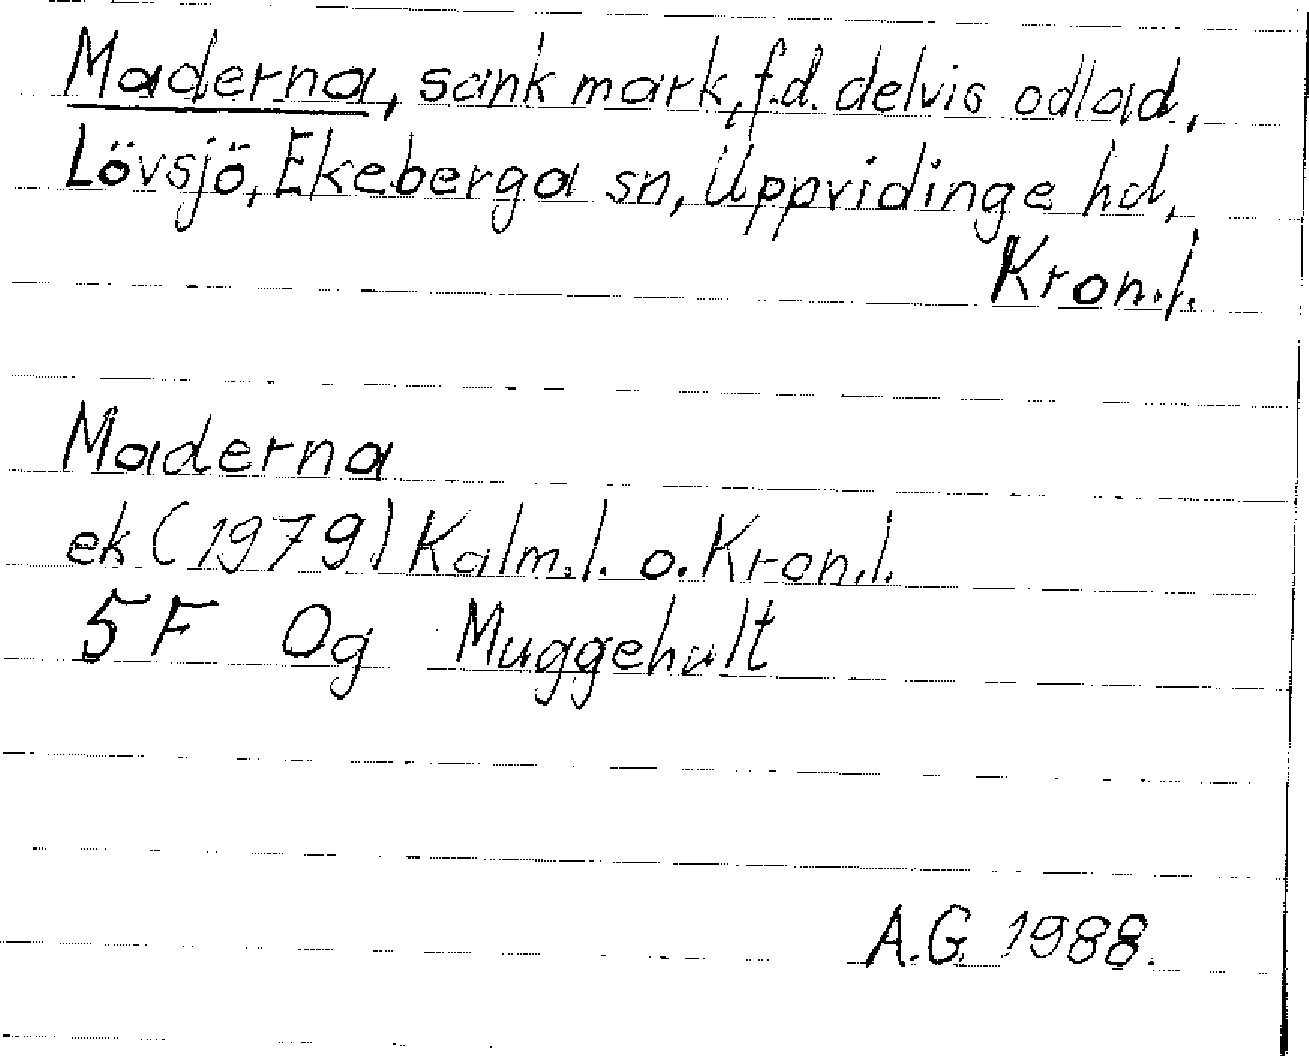 Maderna, sank mark, f.d. delvis odlad,
Lövsjö, Ekeberga sn, Uppvidinge hd,
Kron.l.
Maderna
ek (1979) Kalm.l. o. Kron.l.
5F 0g Muggehult
A.G. 1988.